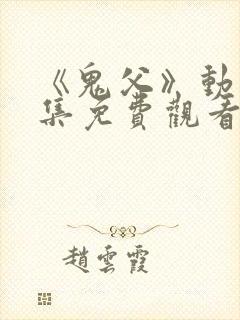 《鬼父》動
集免費觀看
趙雲霞